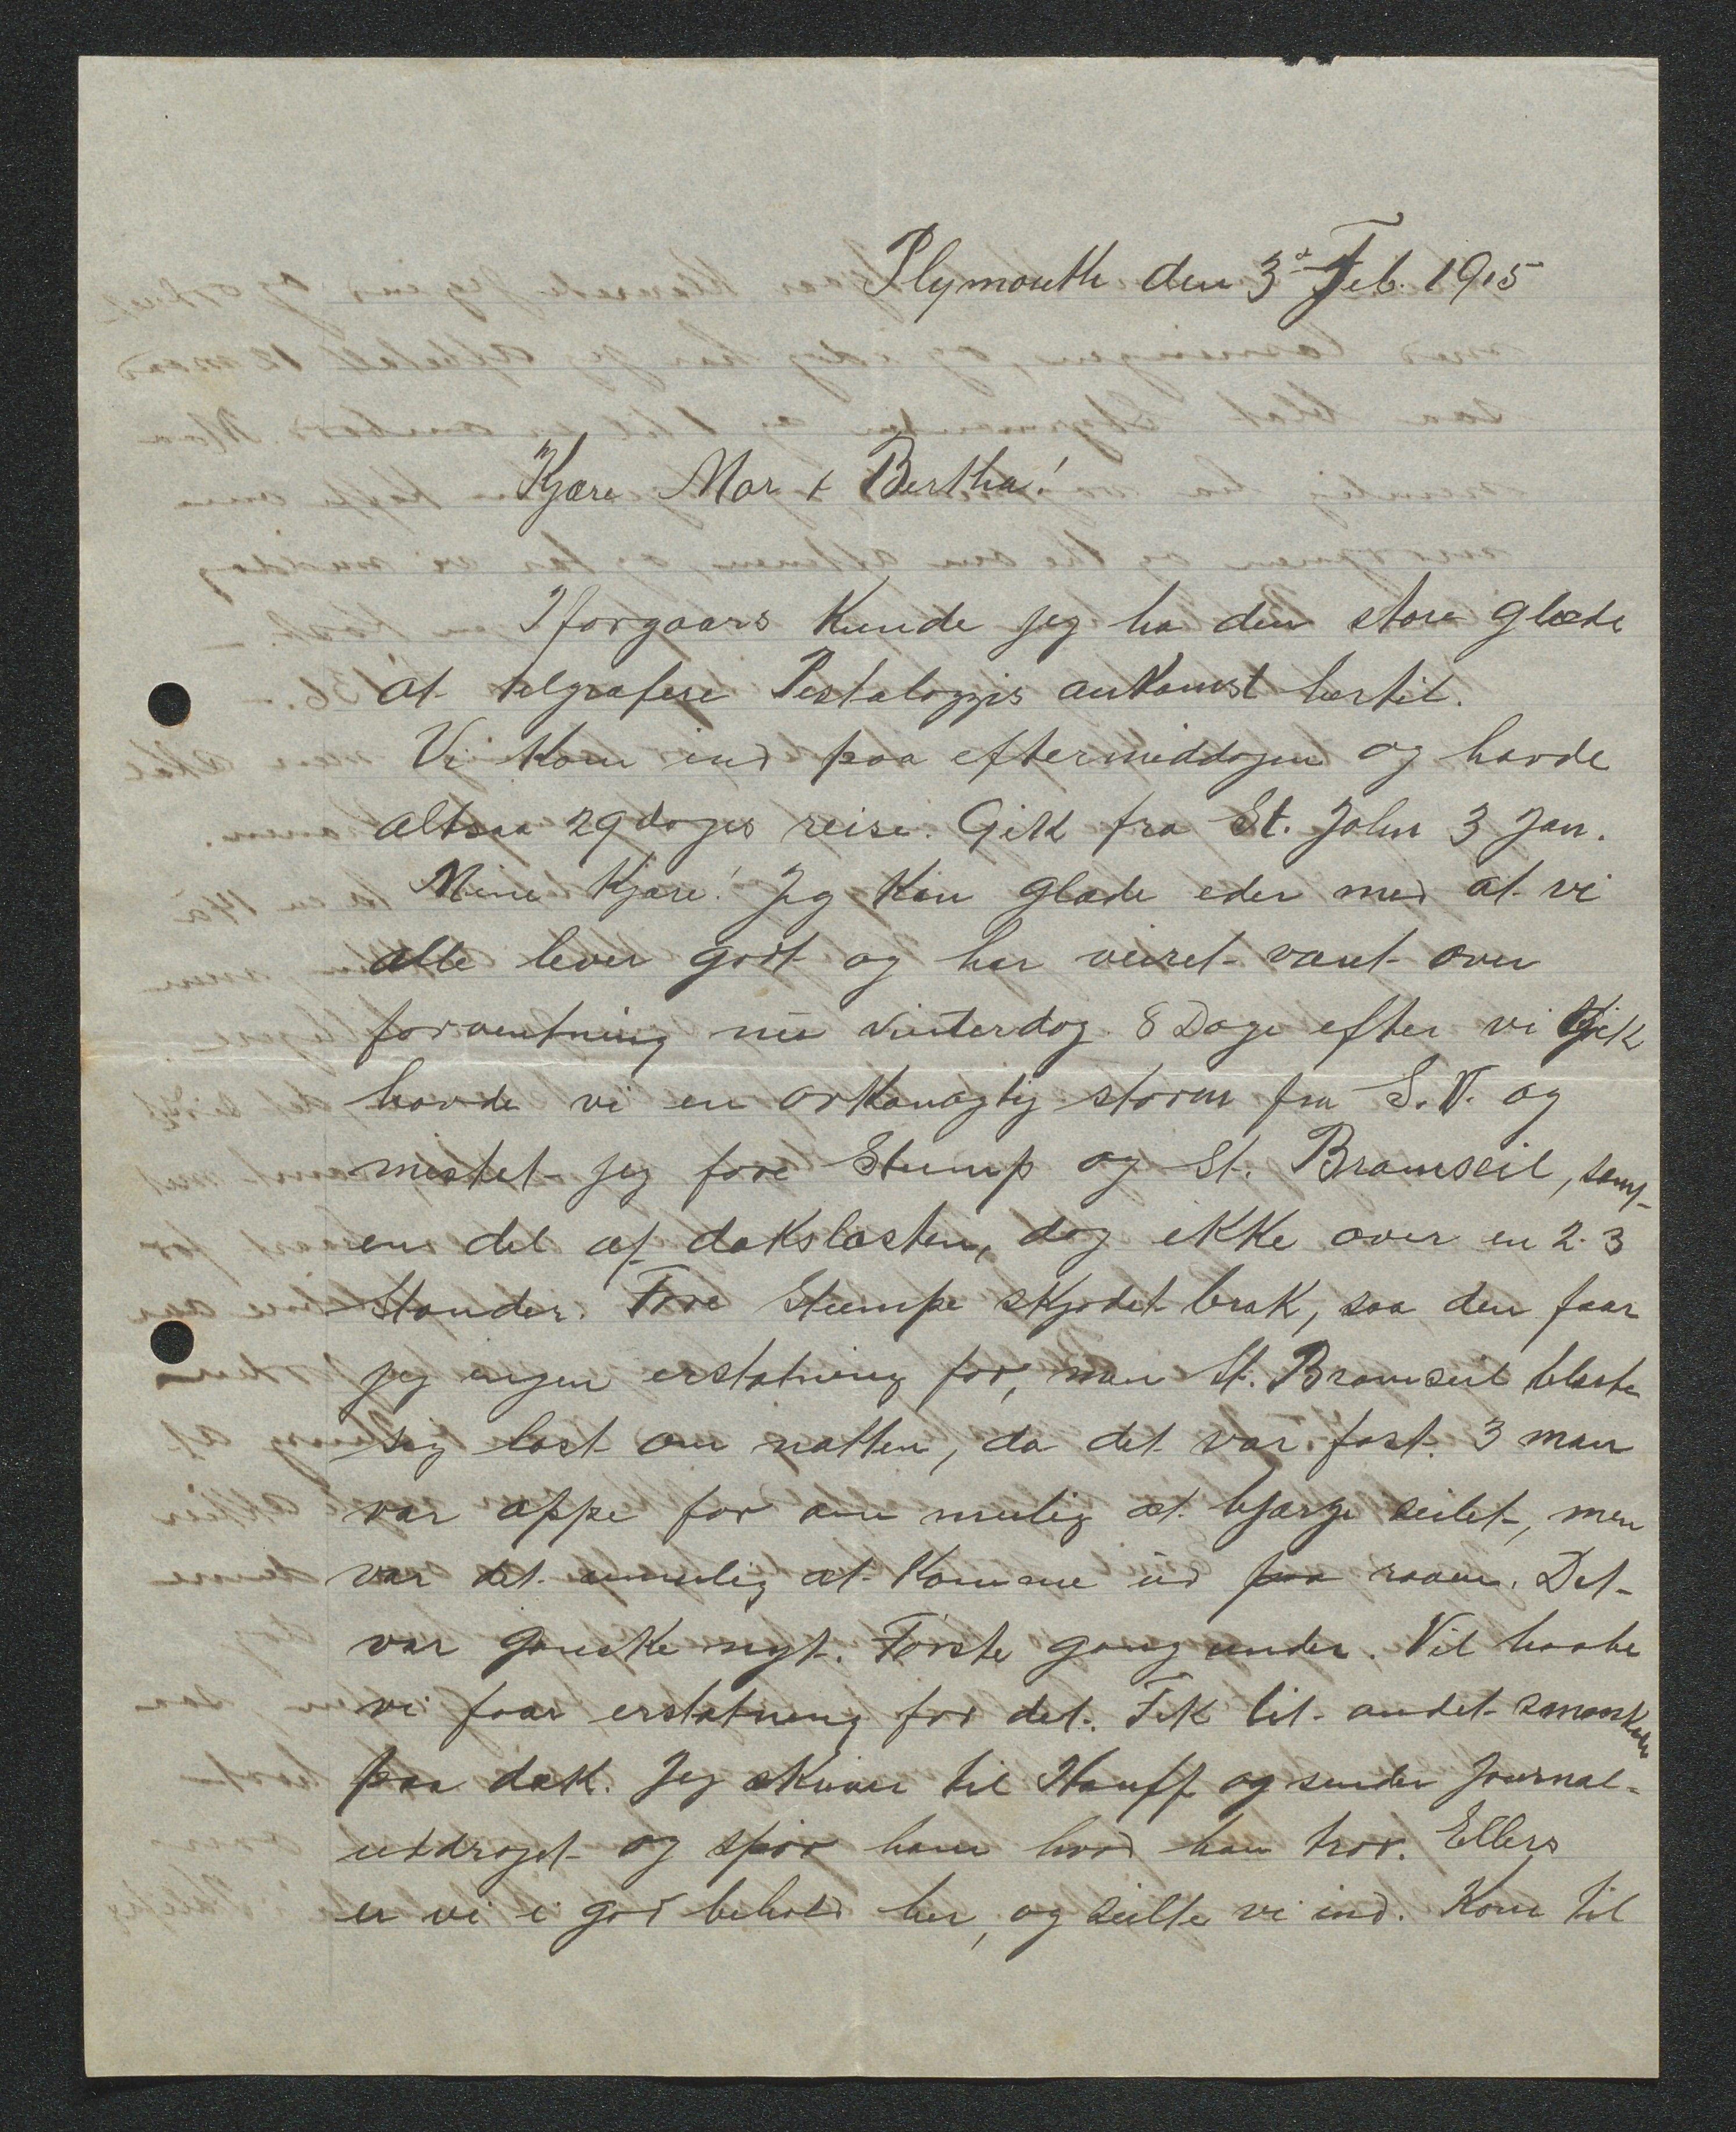 Plymouth den 3d Feb. 1915
Kjære Mor & Bertha!
Iforgaars kunde jeg ha den store glæde
at telgrafere Pestalozzis ankomst hertil.
Vi kom ind paa eftermiddagen og havde
altsaa 29 dages reise. Gik fra St. John 3 Jan.
Mine kjære! Jeg kan glæde eder med at vi
alle lever godt og har veiret været over
forventning nu vinterdag. 8 Dage efter vi Gik
havde vi en orkanagtig storm fra S.V. og
mistet jeg fore Stump og St. Bramseil, samt
en del af dækslasten, dog ikke over en 2-3
Stander. Fore Stumpe skjødet brak, saa den faar
jeg ingen erstatning for, men St. Bramseil blæste
sig løst om natten, da det var fast. 3 man
var oppe for om mulig at bjærge seilet, men
var det umulig at komme ud paa raaen. Det
var ganske nyt. Første gang under. Vil haabe
vi faar erstatning for det. Fik lit andet smaaskade
paa dæk. Jeg skriver til Hauff og sender Journal-
uddraget og spør ham hvad han tror. Ellers
er vi i god behold her, og seilte vi ind. Kom til